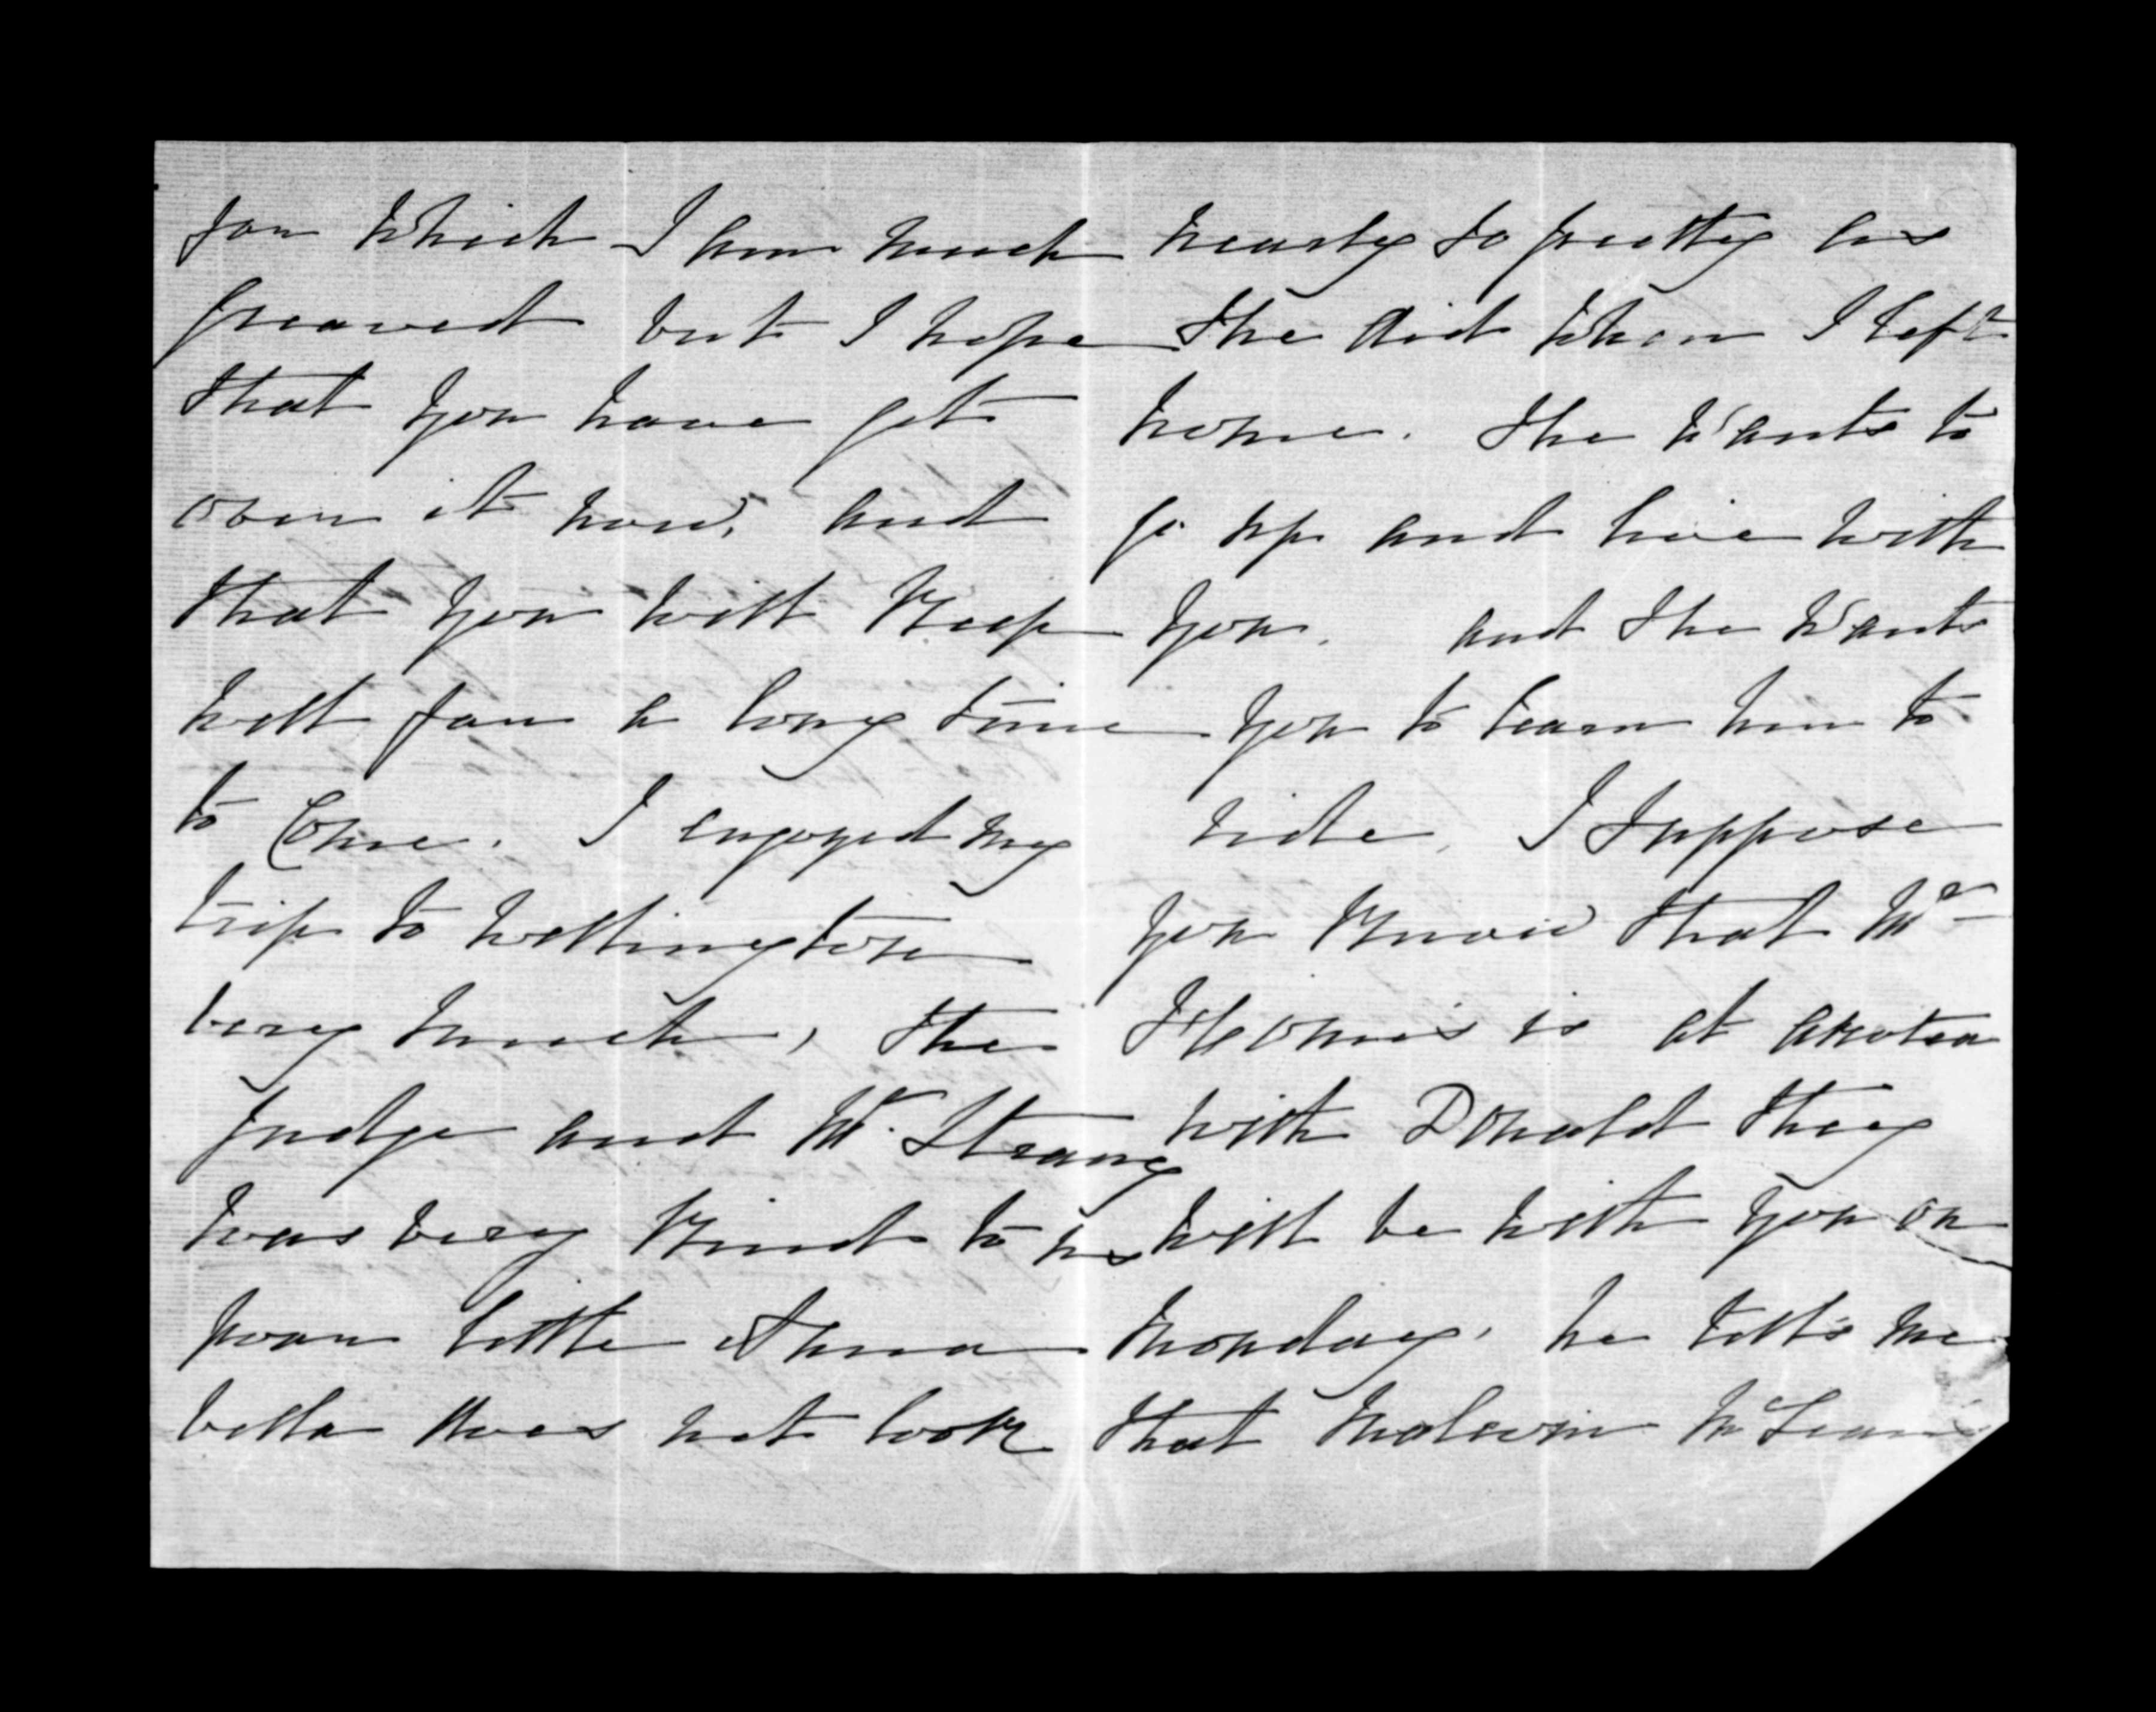 for which I am much
greaved but I hope
that you have got
over it now, and
that you will Keep
well for a long time
to Come. I enjoyed my
trip to wellington
very much, the
judge and Mr. Strang
was very Kind to us
poor little Anna
bella does not look
nearly so pretty as
she did when I left
home. She wants to
go up and live with
you. and she wants
you to learn her to
ride, I Suppose
you Know that Mr
is at akotea
with Donald they
will be with you on
Monday, he tell's me
that Malcom McLean